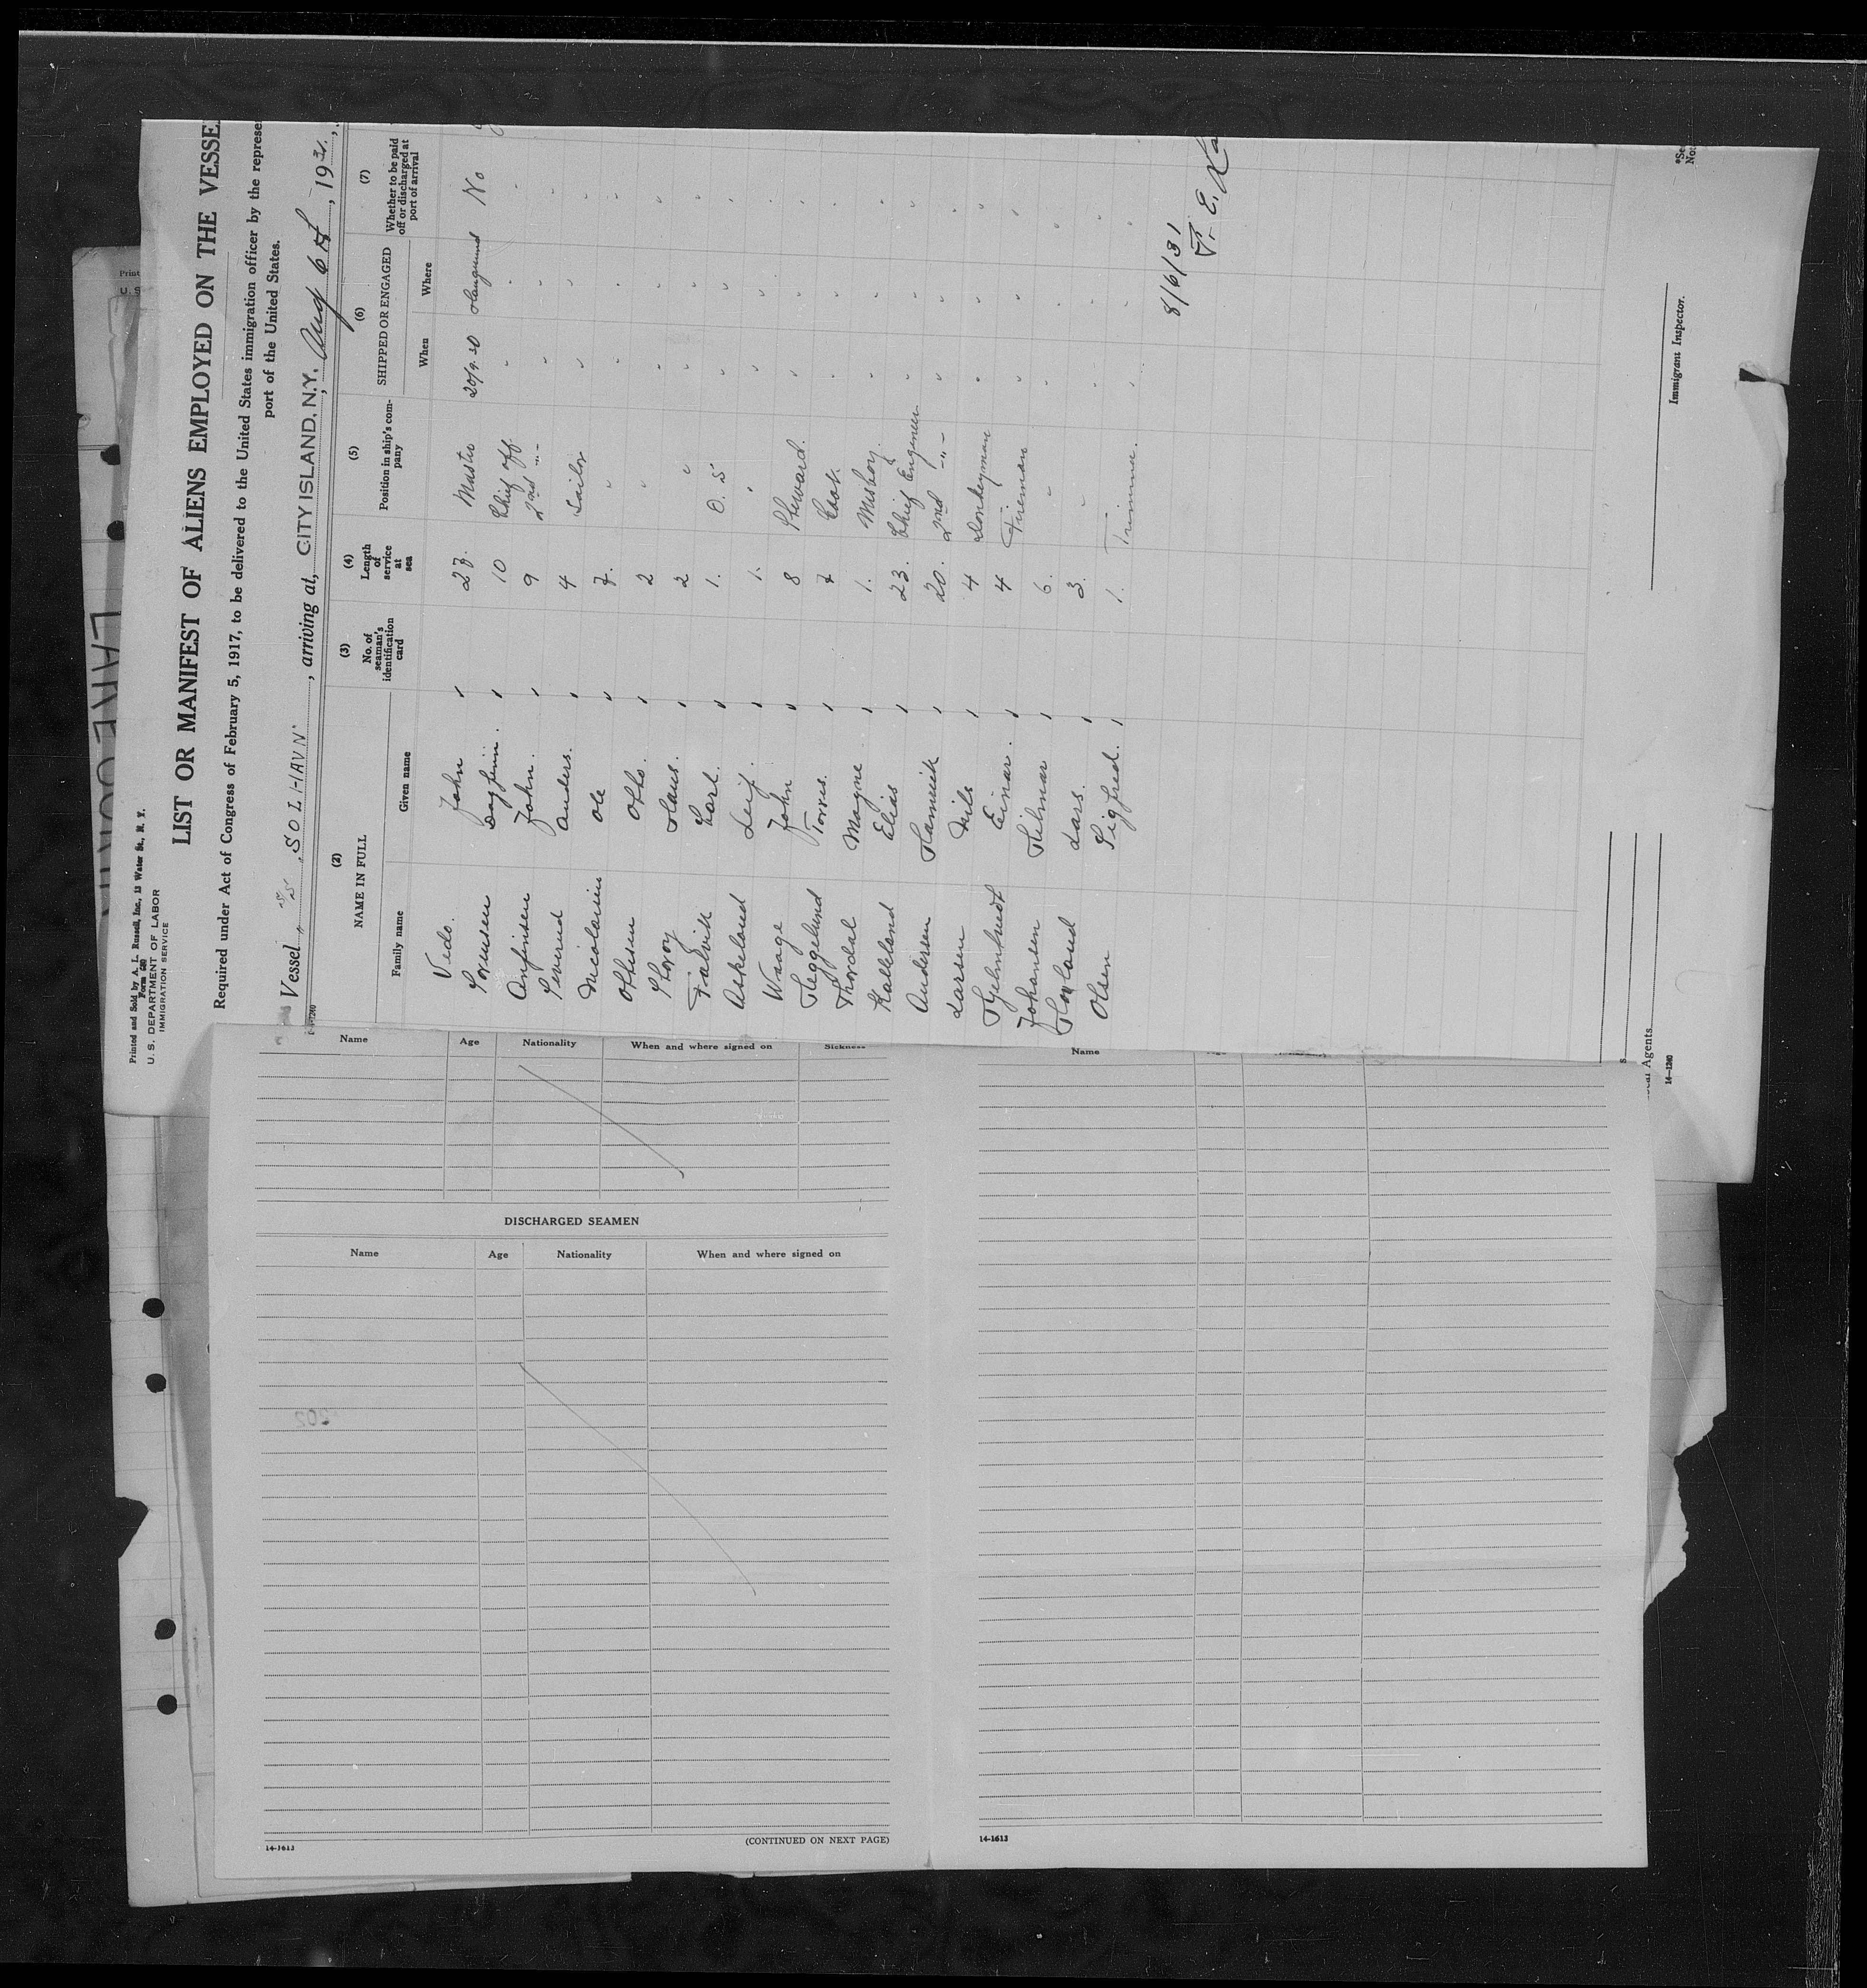 Printed and Sold by A. L. Russell, Inc., 13 Water St., N. Y.
Form 680
U. S. DEPARTMENT OF LABOR
IMMIGRATION SERVICE
LIST OR MANIFEST OF ALIENS EMPLOYED ON THE VESSE
Required under Act of Congress of February 5, 1917, to be delivered to the United States immigration officer by the represe
port of the United States.
Vessel SOLHAVN, arriving at, CITY ISLAND, N.Y., Aug 6th, 1931,
(2) (3) (4) (5) (6) (7)
NAME IN FULL No. of seaman's identification card Length of service at sea Position in ship's company SHIPPED OR ENGAGED Whether to be paid off or discharged at port of arrival
Family name Given name When Where
Vedo. John 27. Master 20/9-30 Haugesund No
Sorensen Dagfinn. 10 Chief off. " " "
Anfinsen John. 9 2nd -"- " " "
Severud Anders. 4 Sailor " " "
Nicolaisen Ole 7. " " " "
Ottesen Otto. 2 " " " "
Storoy Hans. 2 " " " "
Falvik Karl. 1. O. S " " "
Askeland Leif. 1. " " " "
Waage John 8 Steward. " " "
Heggelund Torres. 7 Cook. " " "
Thordal Magne 1. Messboy. " " "
Kalleland Elias 23. Chief Engineer " " "
Andersen 20. 2nd -"- " " "
Larsen Nils 4 Donkeyman " " "
Einar. 4 Fireman " " "
Johansen Hilmar 6. " " " "
Lars. 3. " " " "
Olsen Sigfred. 1. Trimmer. " " "
8/6/31
F. E.
Immigrant Inspector.
*Se
No
14-1240
cal Agents
14-1240
Print
U. S.
Name Age Nationality When and where signed on Sickness
DISCHARGED SEAMEN
Name Age Nationality When and where signed on
(CONTINUED ON NEXT PAGE)
14-1613
Name
14-1613